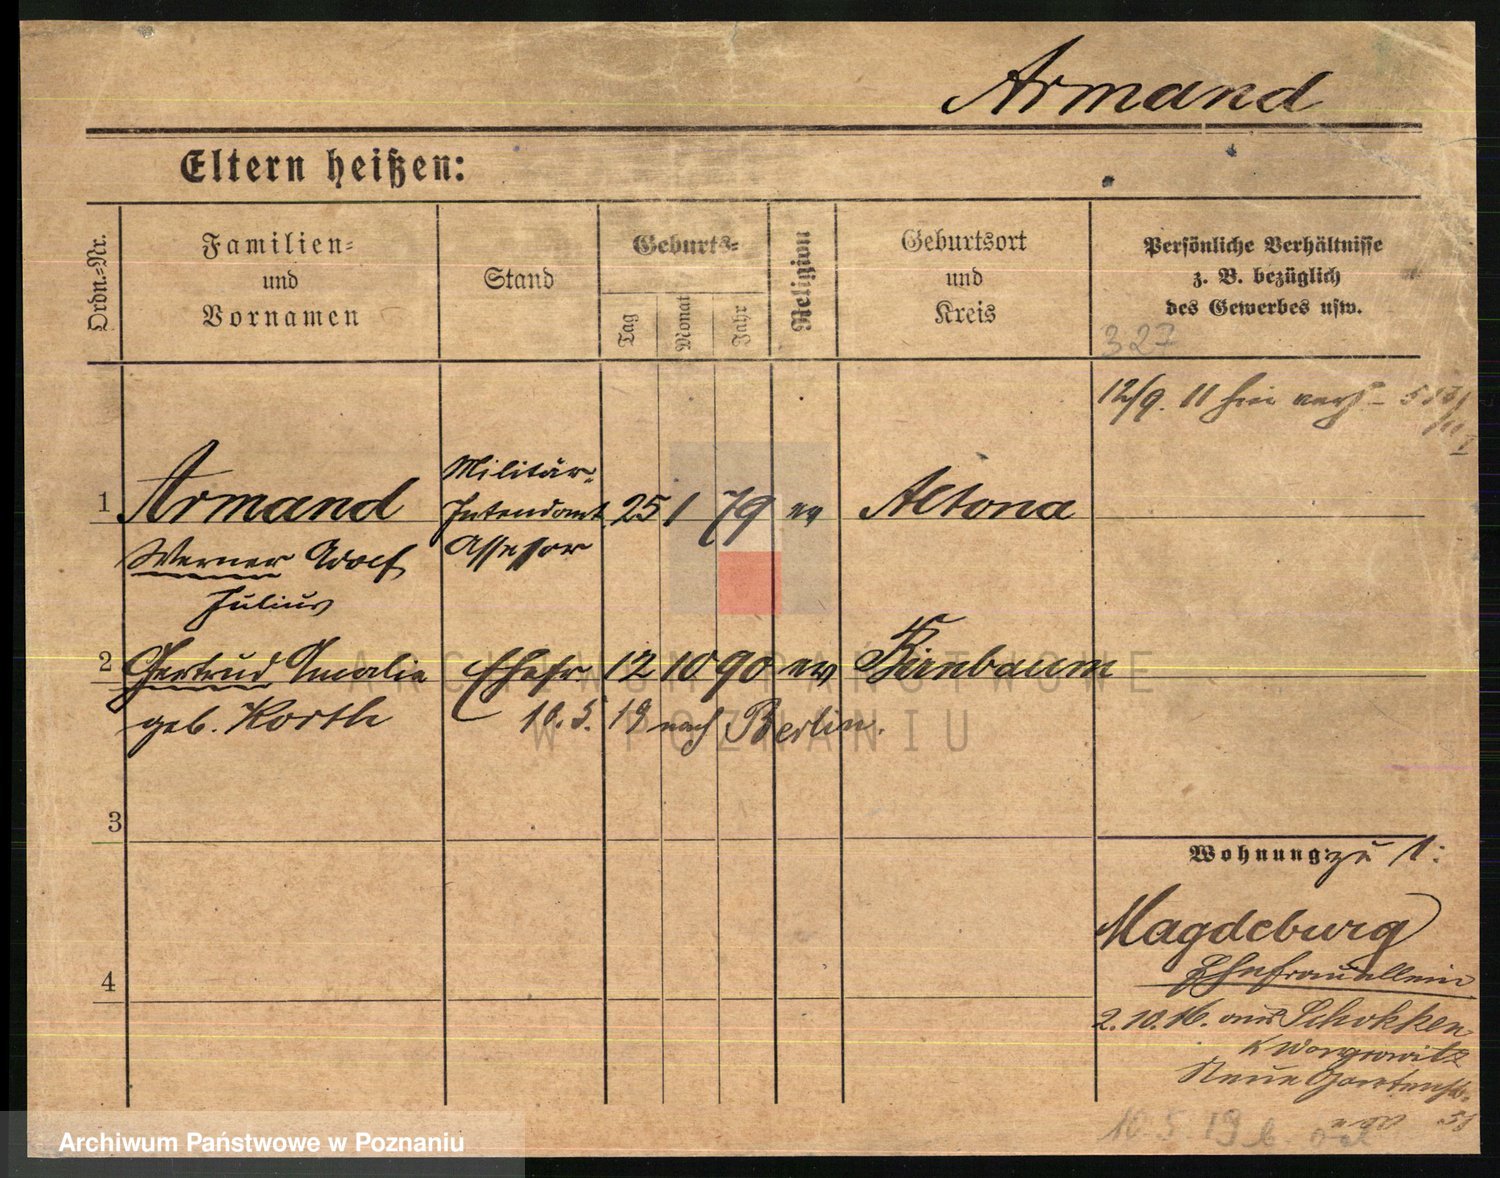 Armand
Eltern heißen:
Ordn.-Nr.
Familien-
und
Vornamen
Stand
Geburts-
Tag
Monat
Jahr
Religion
Geburtsort
und
Kreis
Persönliche Verhältnisse
z. B. bezüglich
des Gewerbes usw.
327
12/9. 11
1 Armand Militär- 25 1 79 ev Altona
Intendant.
Assessor
Werner Adolf
Julius
2 Gertrud Amalie Ehefr 12 10 90 ev Birnbaum
geb. Korth 10. 5. 19 nach Berlin.
3
Wohnung: zu 1:
Magdeburg
Ehefrau allein
4
2.10.16. aus Schokken
K Wongrowitz
Neue Gartenstr.
10.5.19
ARCHIWUM PAŃSTWOWE
W POZNANIU
Archiwum Państwowe w Poznaniu